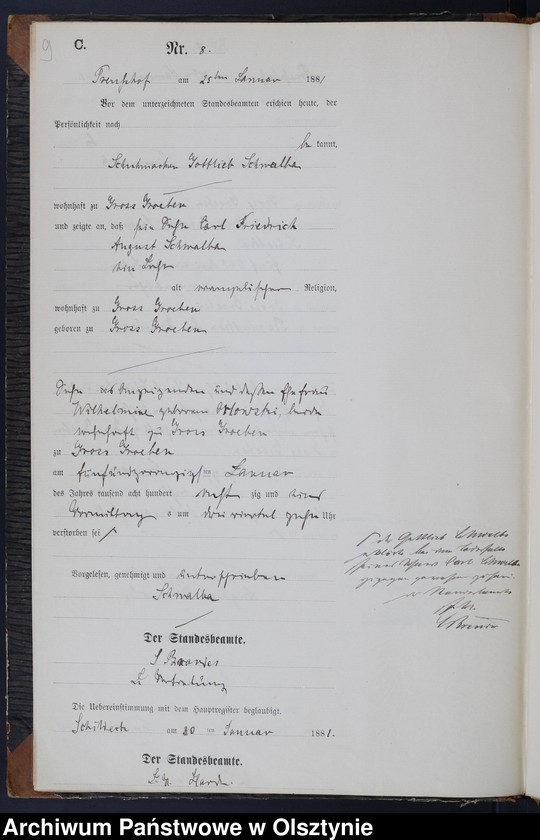 9
C.
Nr. 8.
am 25ten Januar 1881
Vor dem unterzeichneten Standesbeamten erschien heute, der
Persönlichkeit nach
be kannt,
Schuhmacher Gottlieb Schwalba
wohnhaft zu Gross Groeben
und zeigte an, daß sein Sohn Carl Friedrich
August Schwalba
ein Jahr
alt evangelischer Religion,
wohnhaft zu Gross Groeben
geboren zu Gross Groeben
Sohn des Anzeigenden und dessen Ehefrau
Wilhelmine geborene Orlowski, beide
wohnhaft zu Gross Groeben
zu Gross Groeben
am fünfundzwanzigsten Januar
des Jahres tausend acht hundert achtzig und eins
Vormittag s um drei viertel zehn Uhr
verstorben sei
Vorgelesen, genehmigt und unterschrieben
Schwalba
Der Standesbeamte.
In Vertretung
Die Uebereinstimmung mit dem Hauptregister beglaubigt.
am 30 ten Januar 1881.
Der Standesbeamte.
der Gottlieb Schwalba
bei dem
seines Sohnes Carl Schwalba
zugegen gewesen
der Standesbeamte
Archiwum Państwowe w Olsztynie